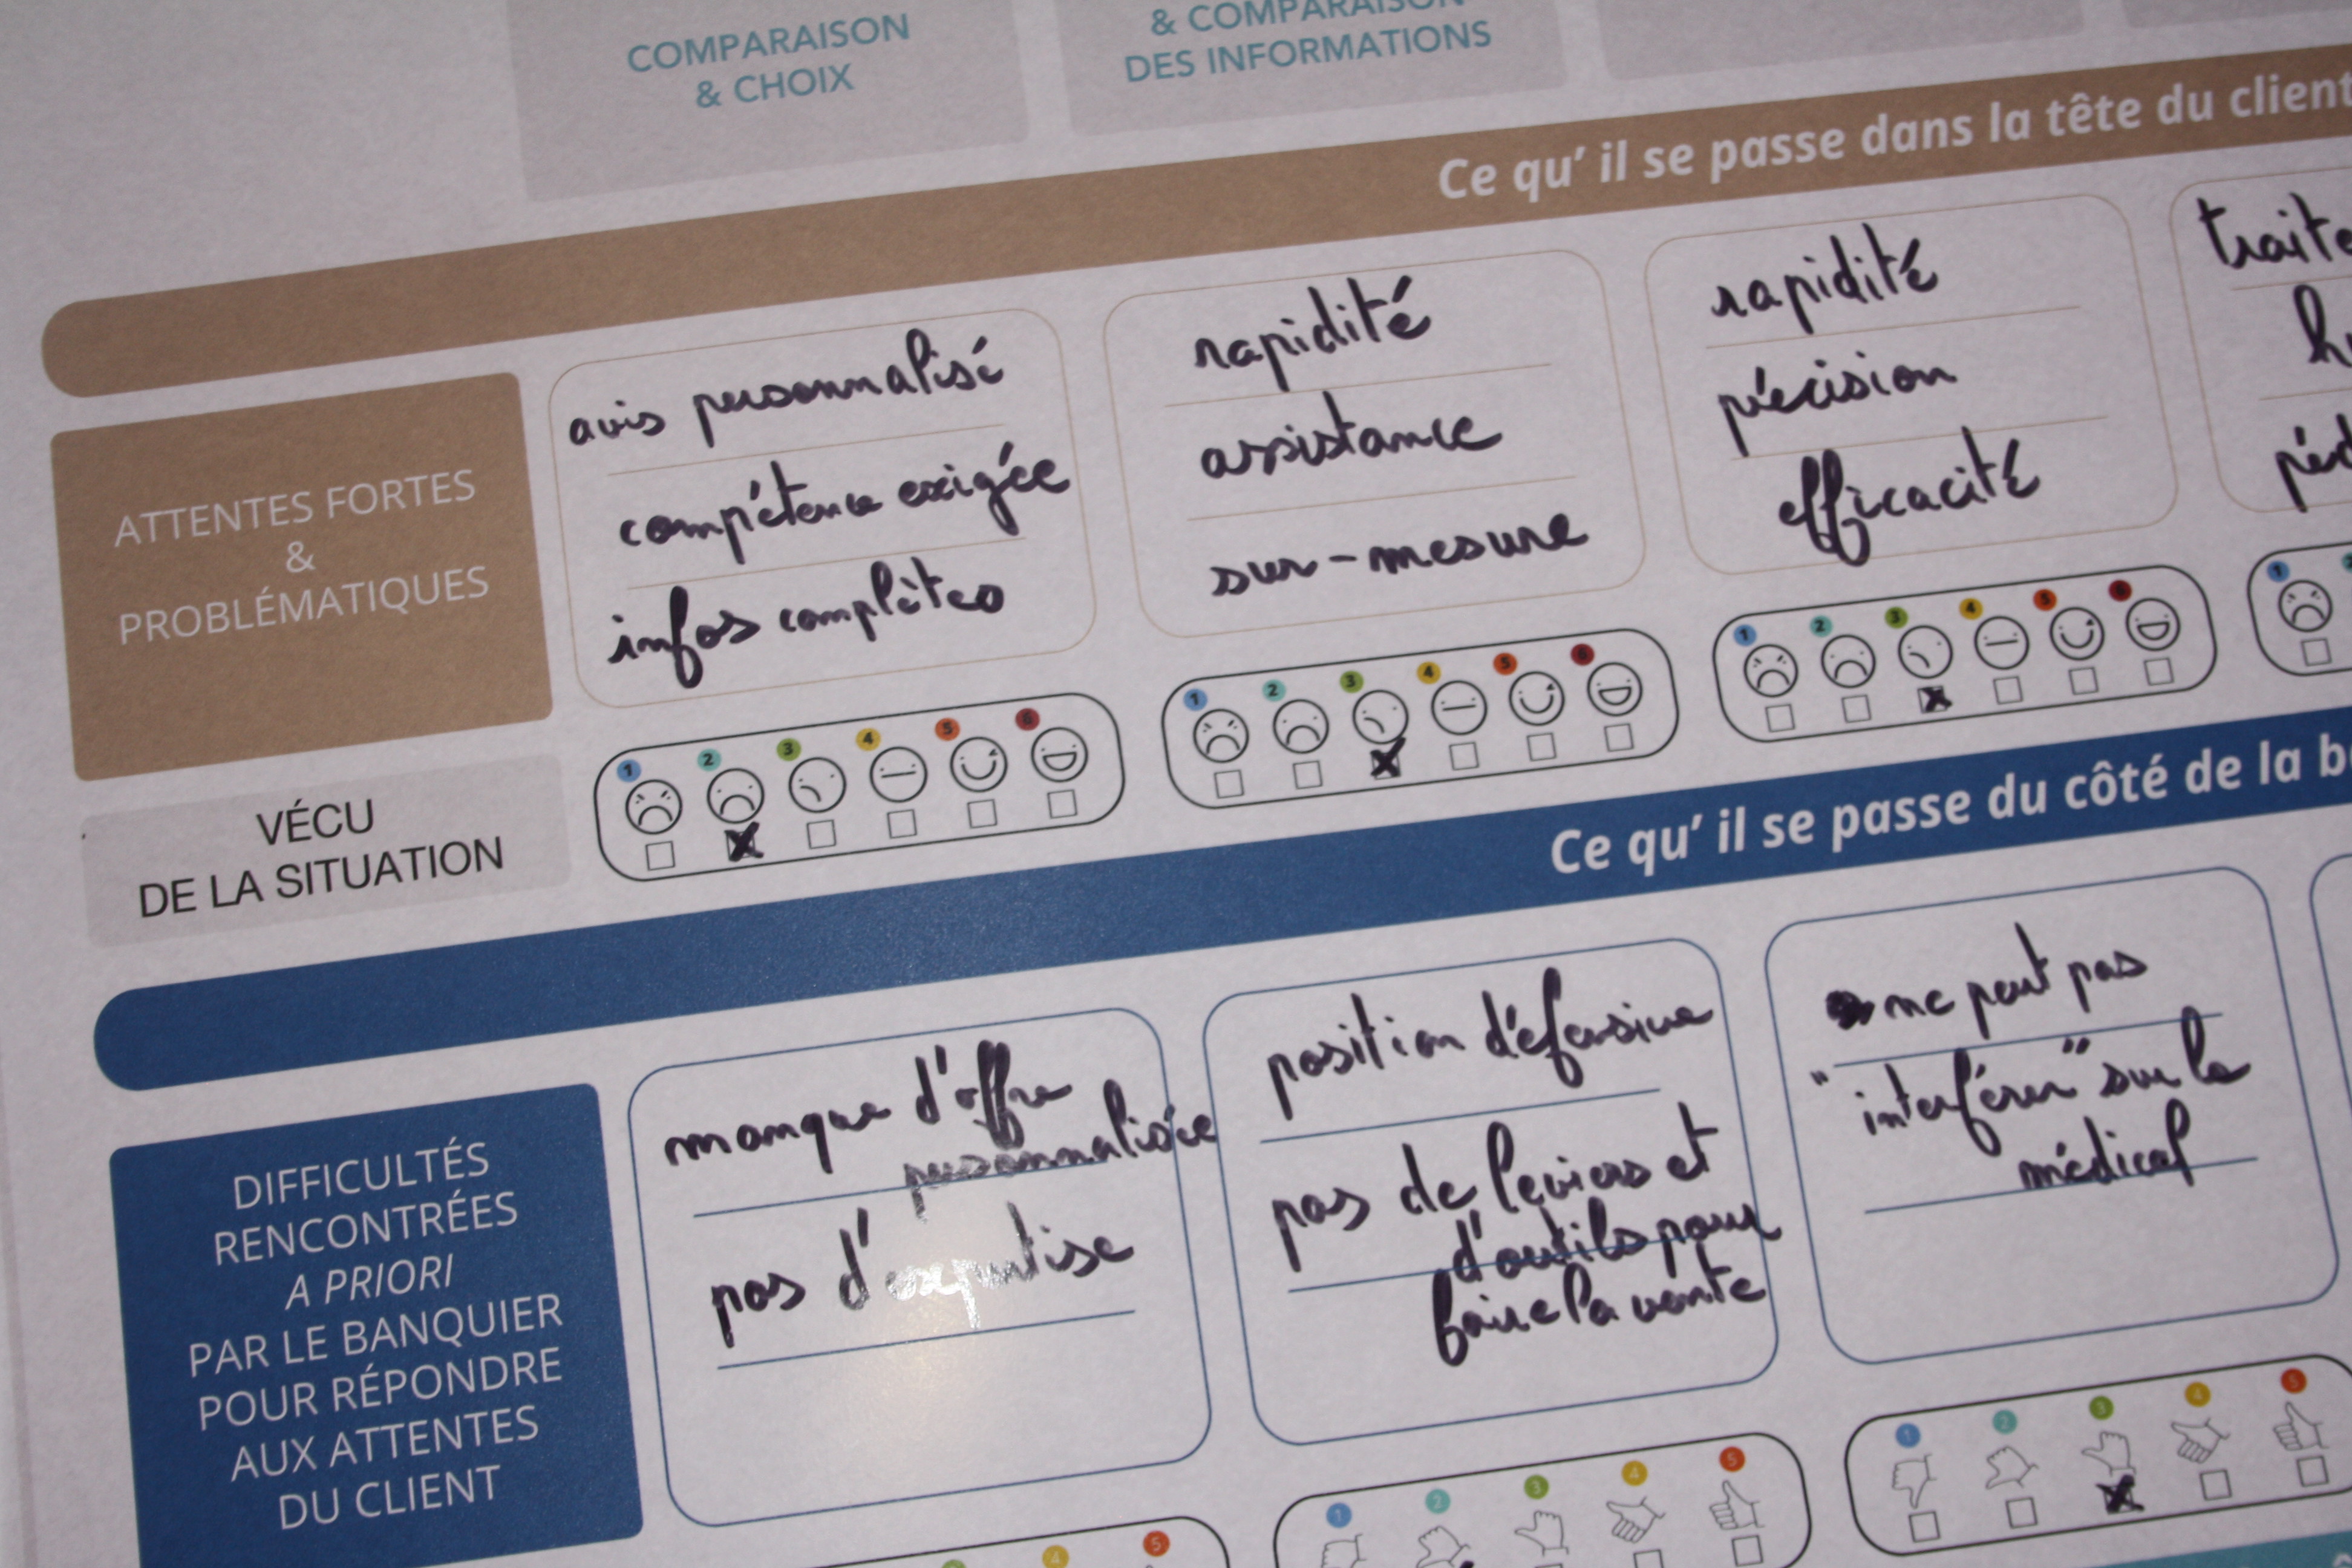 COMPARAISON
& CHOIX
& COMPARAISON
DES INFORMATIONS
Ce qu' il se passe dans la tête du client
ATTENTES FORTES
&
PROBLÉMATIQUES
avis personnalisé
compétence exigée
infos complètes
rapidité
assistance
sur-mesure
rapidité
précision
efficacité
VÉCU
DE LA SITUATION
1 2 3 4 5 6
1 2 3 4 5 6
1 2 3 4 5 6
1
Ce qu' il se passe du côté de la
DIFFICULTÉS
RENCONTRÉES
A PRIORI
PAR LE BANQUIER
POUR RÉPONDRE
AUX ATTENTES
DU CLIENT
manque d'offre
personnalisée
pas d'expertise
position défensive
pas de leviers et
d'outils pour
faire la vente
ne peut pas
"interférer" sur le
médical
4 5
1 2 3 4 5
1 2 3 4 5